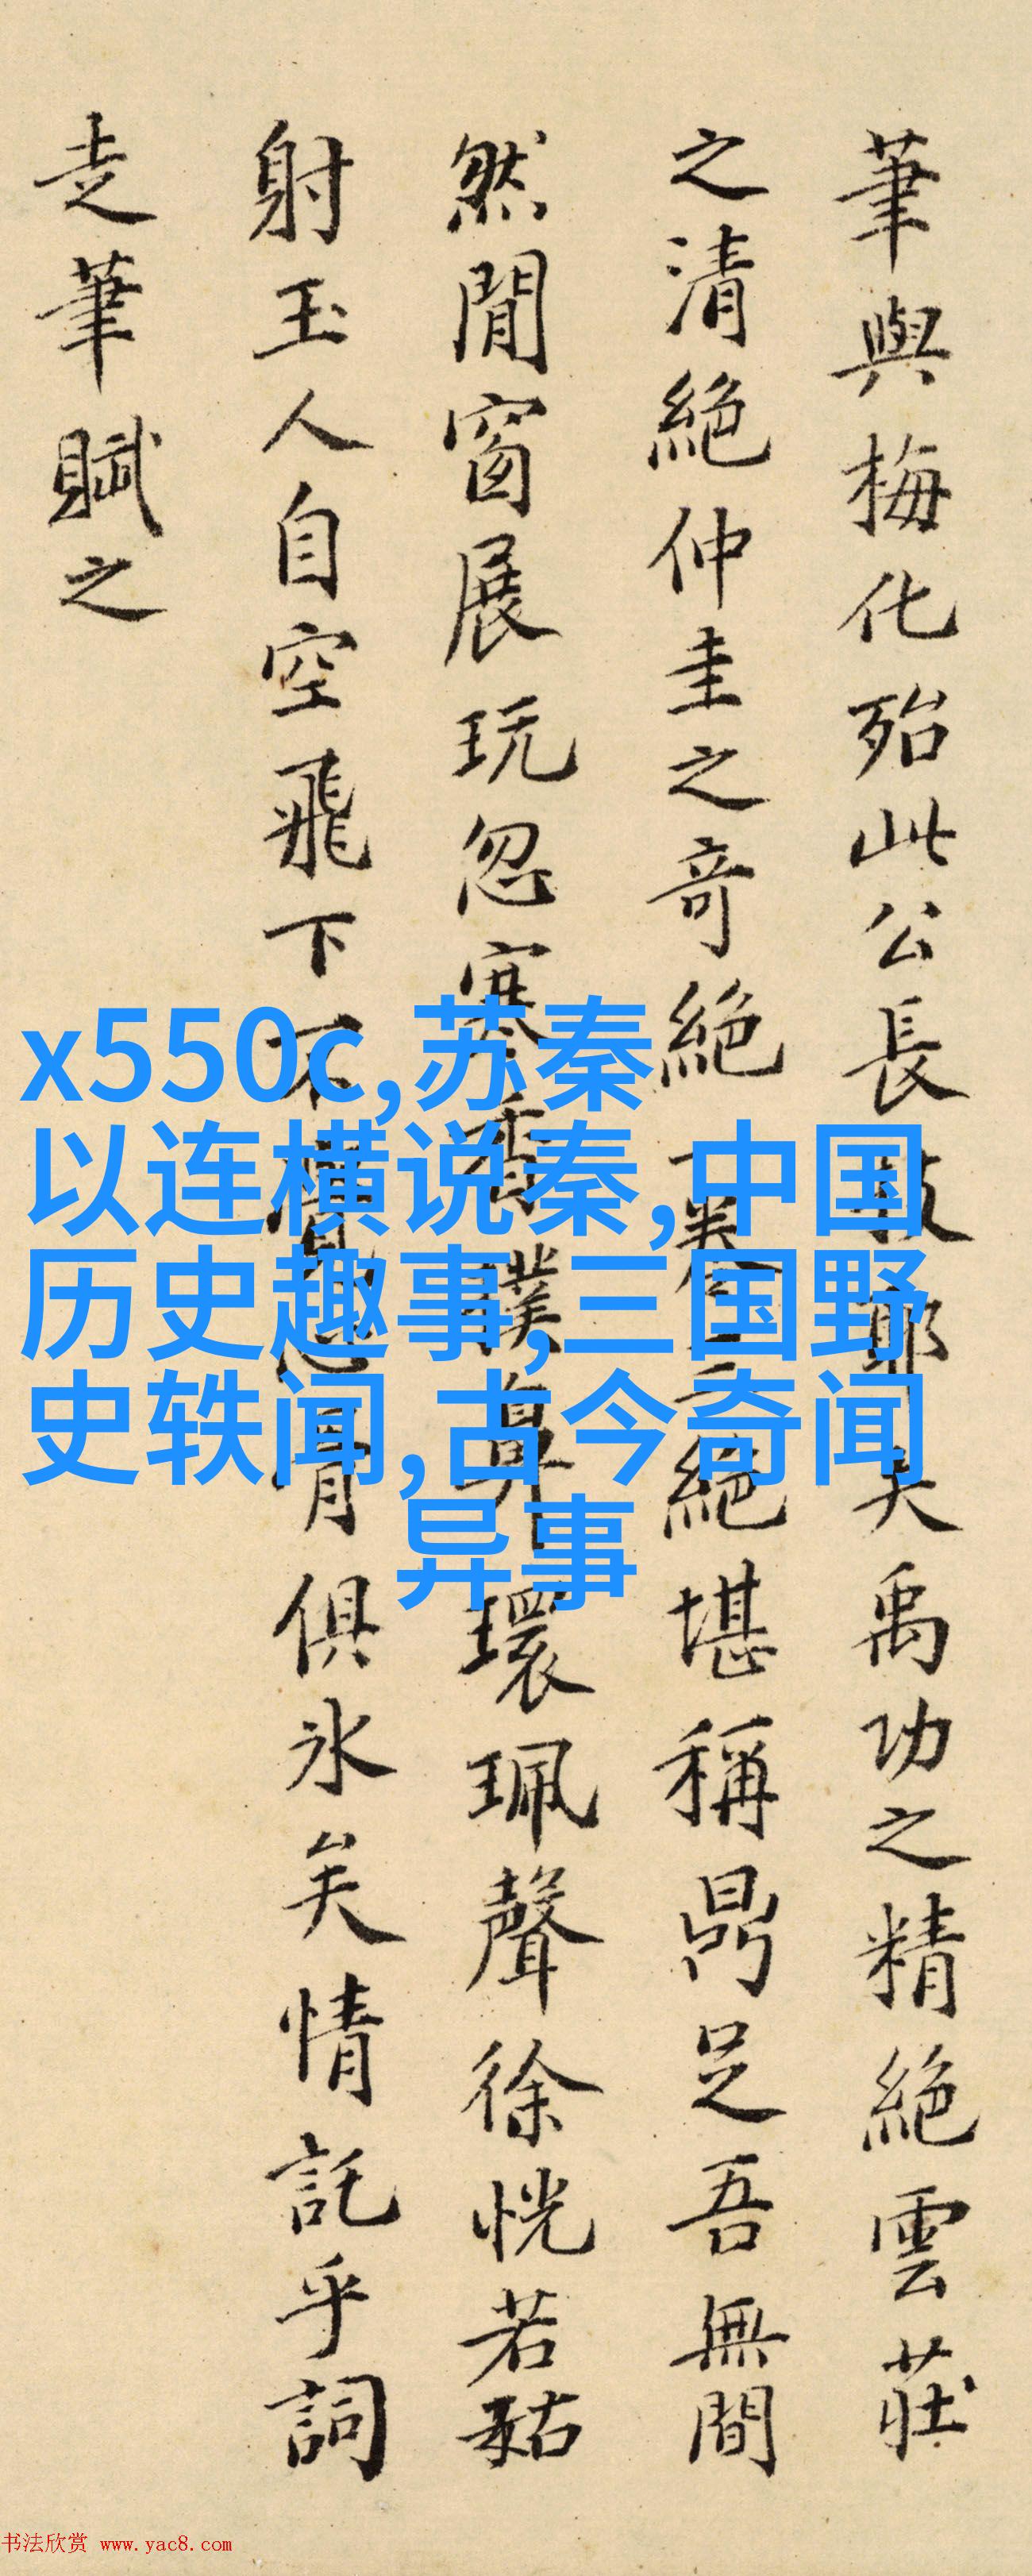 筆與梅化殆此公長技耶夫禹功之精絕雲莊
之清絕仲圭之奇絕一卷三絕堪稱鼎足吾無間
然閒窗展玩忽寒香撲鼻環珮聲徐恍若藐姑
射玉人自空飛下不覺心骨俱冰矣情託乎詞
走筆賦之
x550c,苏秦
以连横说秦,中国
历史趣事,三国野
史轶闻,古今奇闻
异事
书法欣赏 www.yac8.com